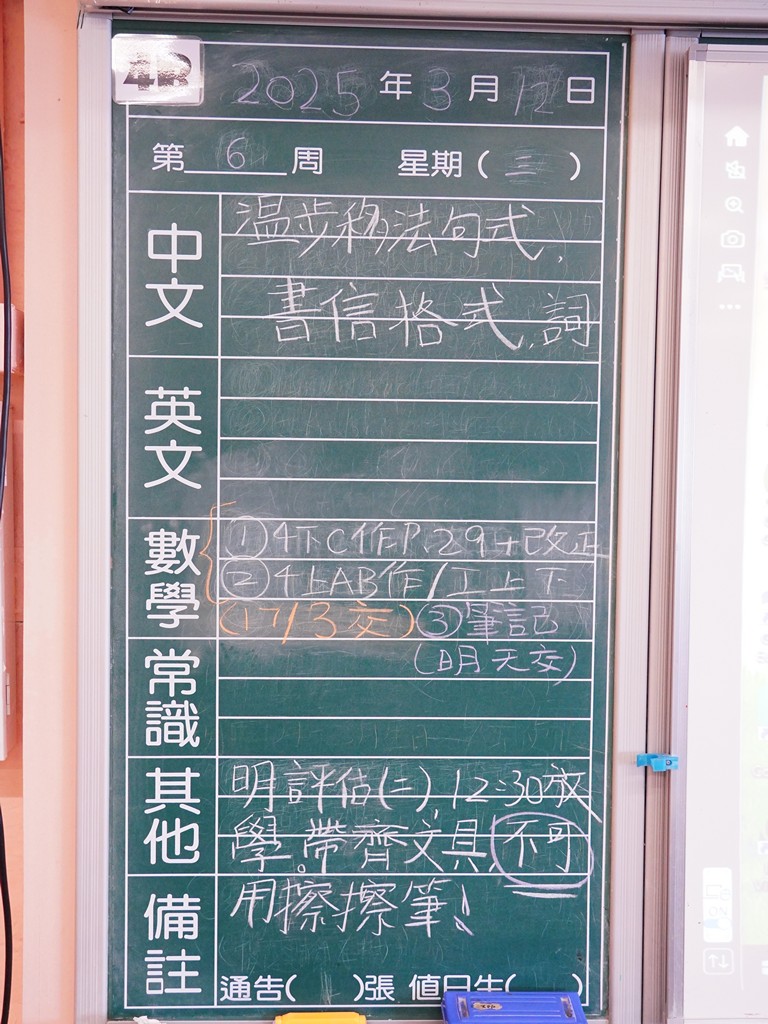 4B
2025年3月12日
第6周 星期(三)
中文
溫步移法句式,
書信格式,詞
英文
數學
①4下C作P.29+改正
②4上AB作/工上下
(17/3交)③筆記
(明天交)
常識
其他
明評估(二),12:30放
學。帶齊文具,不可
備註
用擦擦筆!
通告( )張 值日生( )